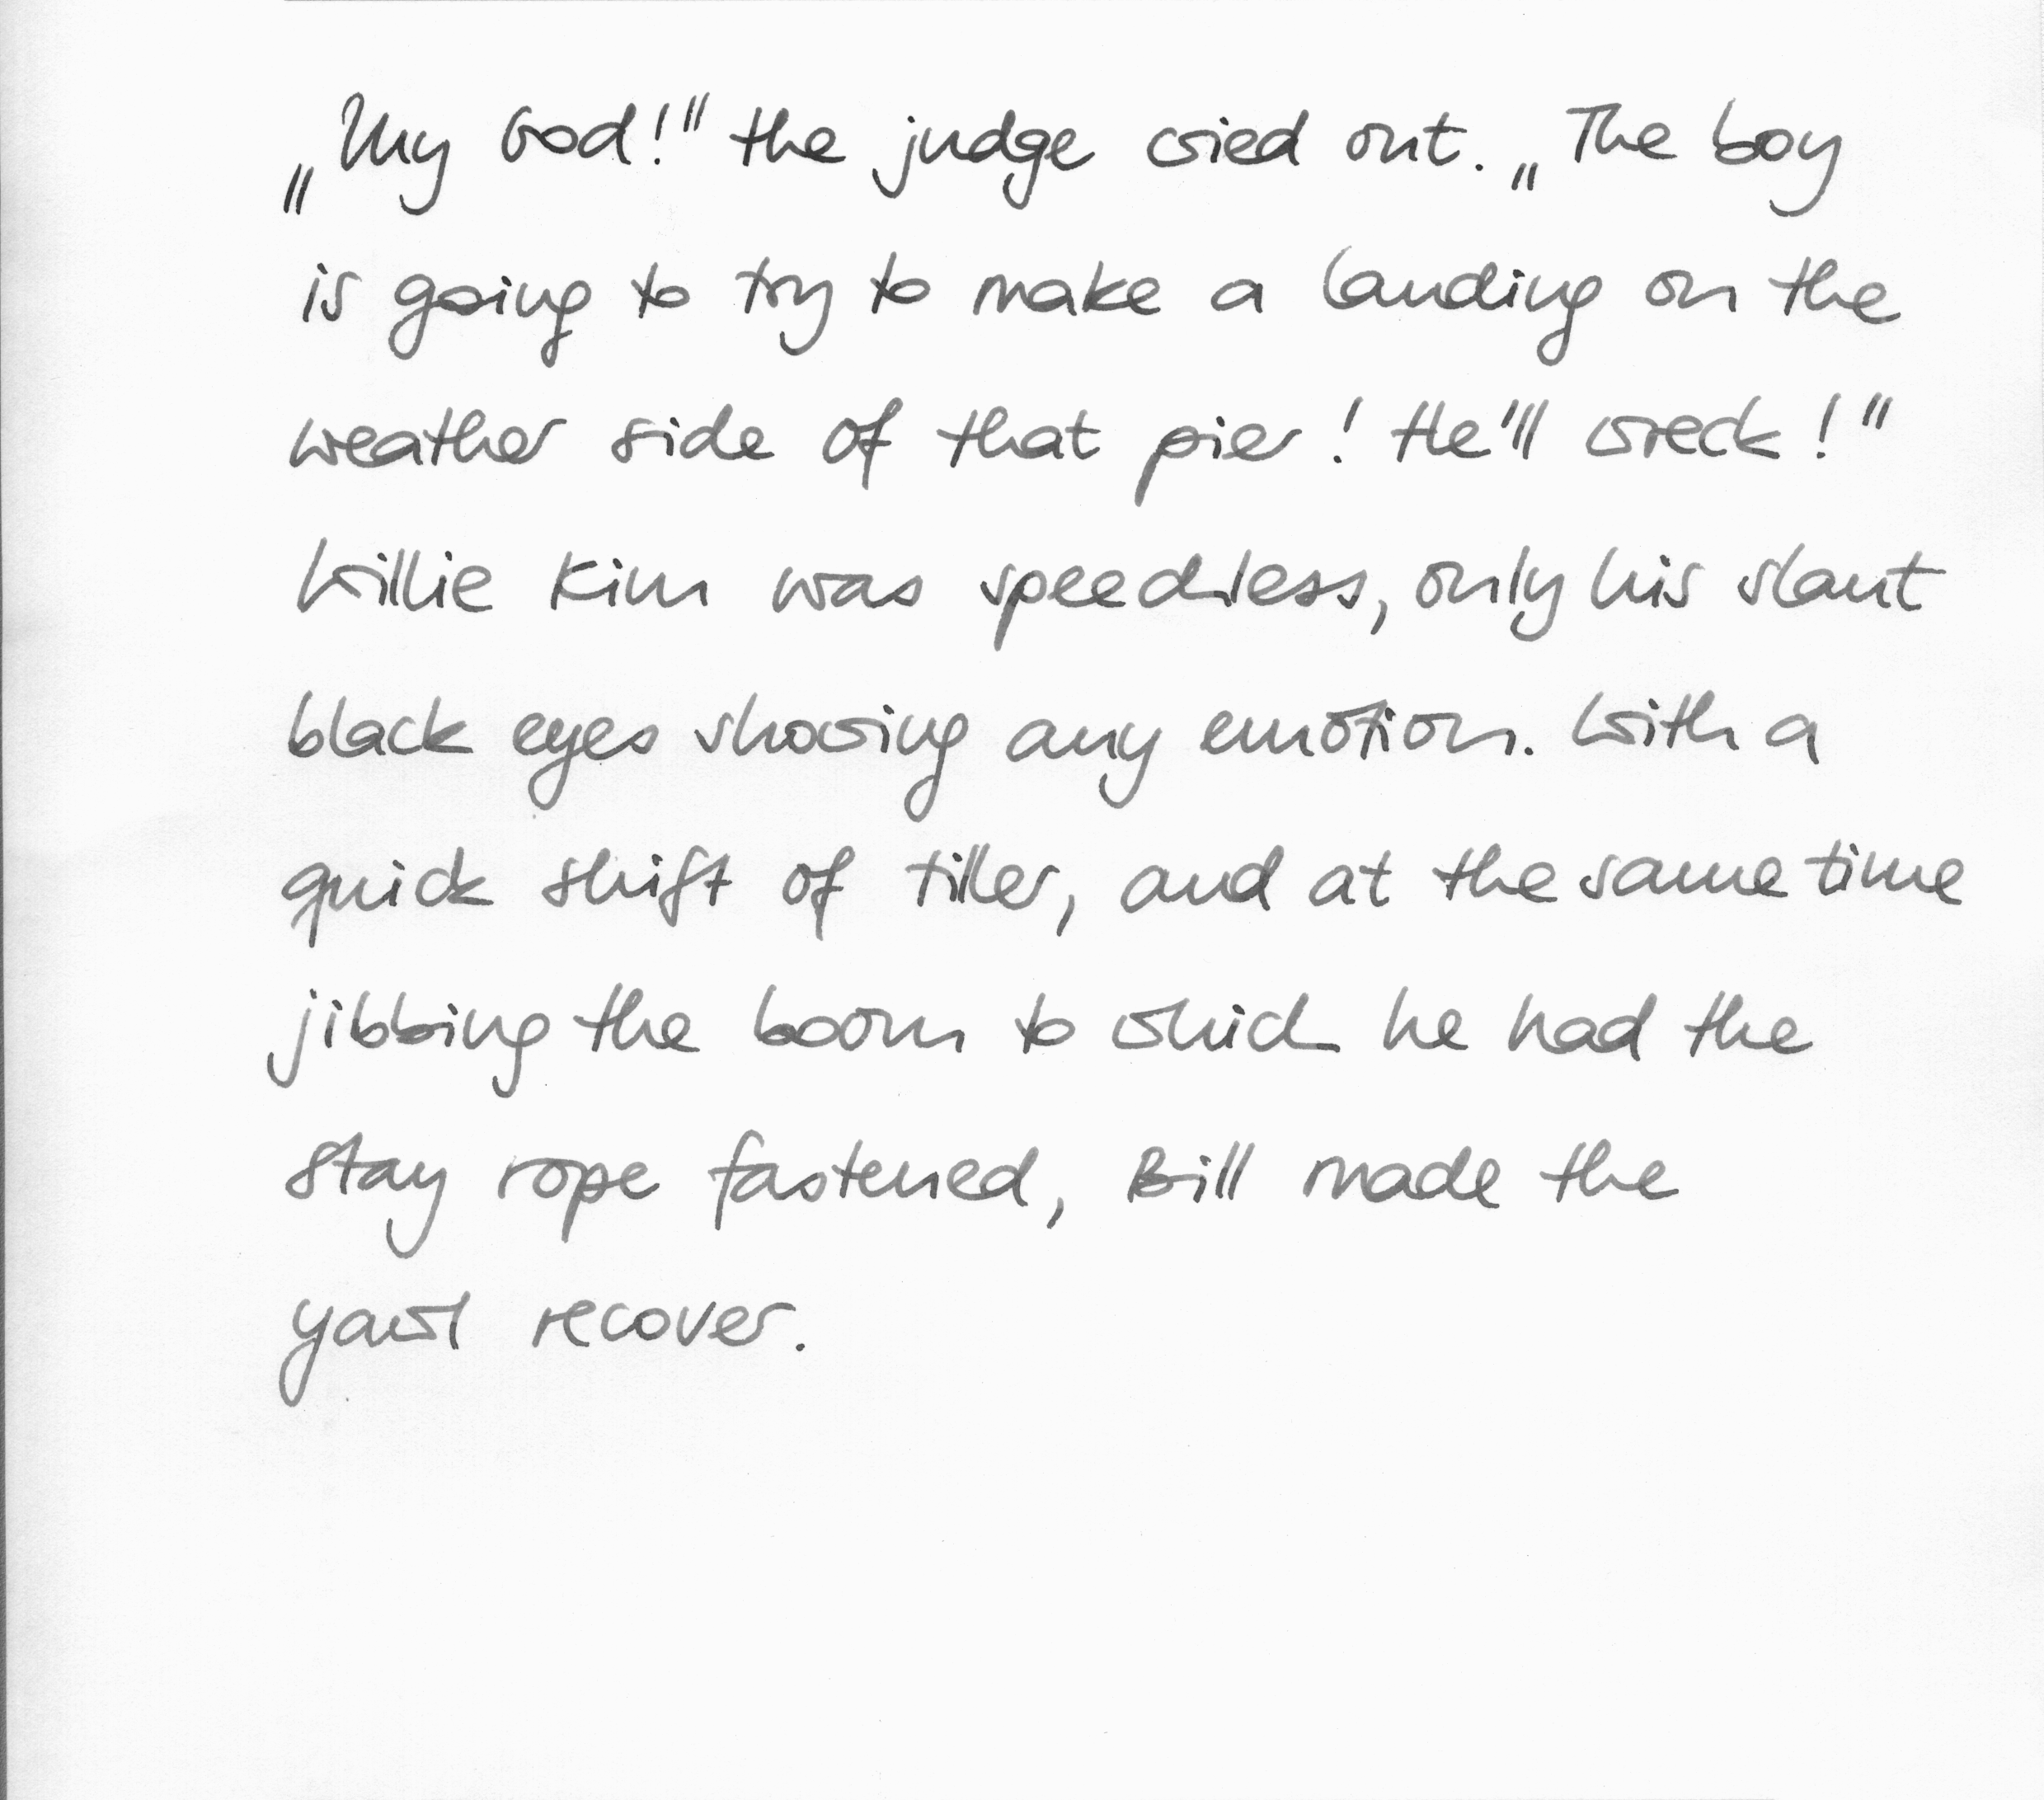 „My God!" the judge cried out. „The boy
is going to try to make a landing on the
weather side of that pier! He'll wreck!"
Willie Kim was speechless, only his slant
black eyes showing any emotion. With a
quick shift of tiller, and at the same time
jibbing the boom to which he had the
stay rope fastened, Bill made the
yawl recover.